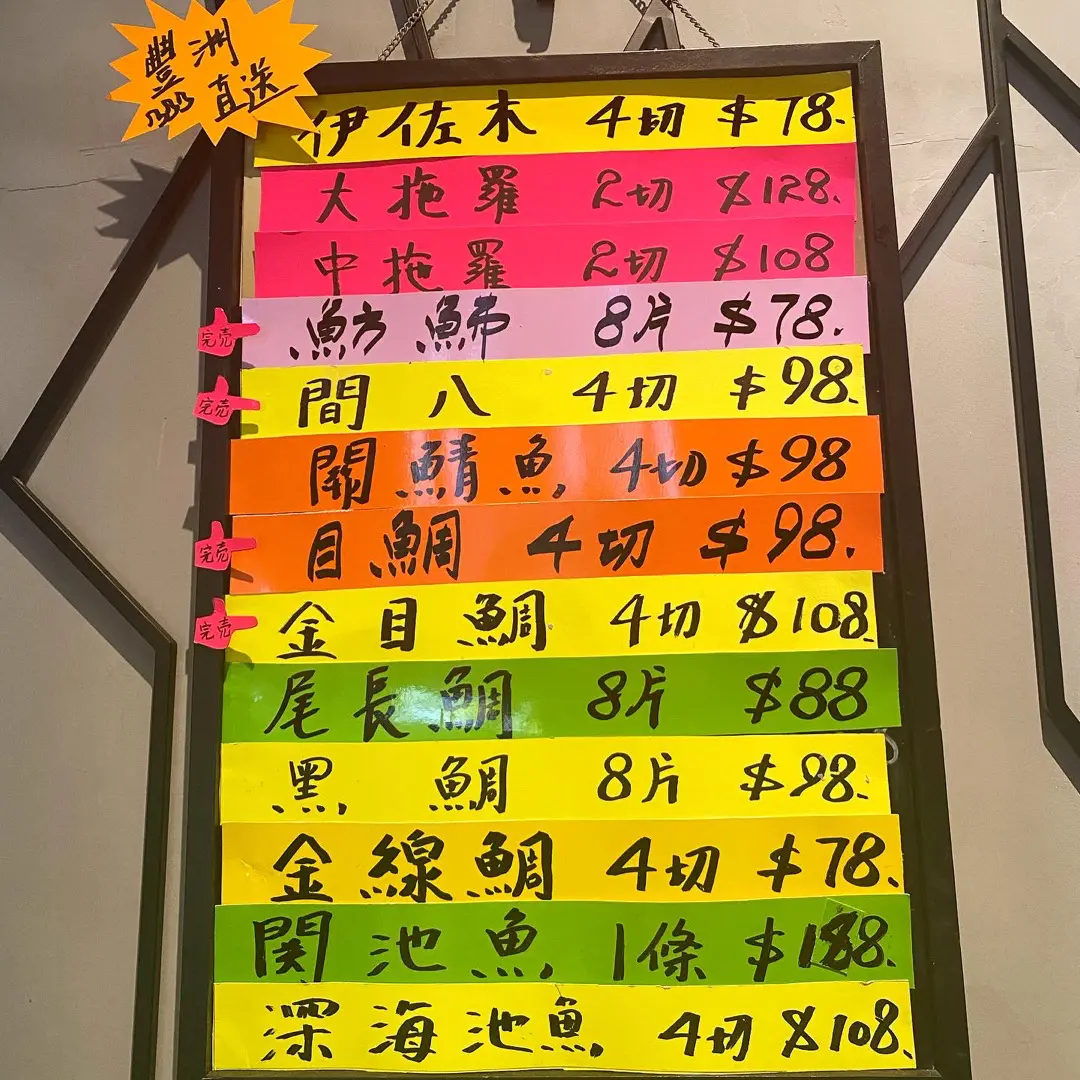 豐洲
直送
伊佐木 4切 $78.
大拖羅 2切 $128.
中拖羅 2切 $108
魴鮄 8片 $78.
完売
間八 4切 $98.
完売
關鯖魚 4切 $98
目鯛 4切 $98.
完売
金目鯛 4切 $108.
完売
尾長鯛 8片 $88
黑鯛 8片 $98.
金線鯛 4切 $78.
関池魚 1條 $188.
深海池魚 4切 $108.